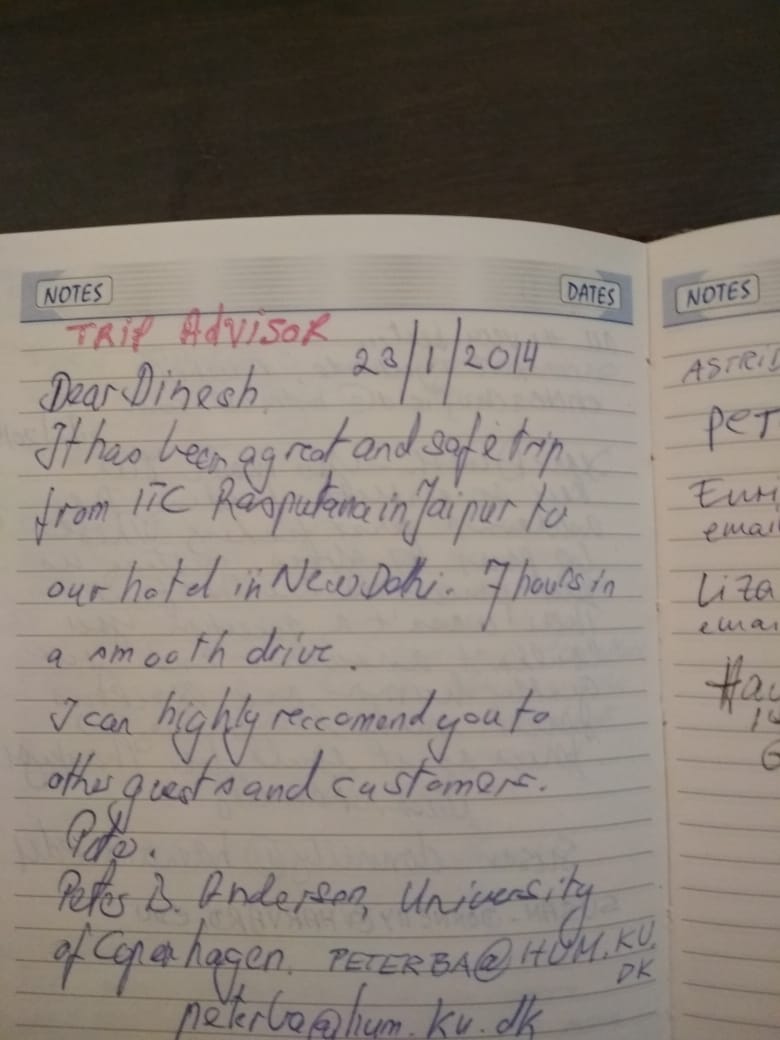 NOTES
DATES
TRIP AdVISOR
23/1/2014
Dear Dinesh
It has been a great and safe trip
from ITC Rasputana in Jaipur to
our hotel in New Delhi. 7 hours in
a smooth drive.
I can highly reccomend you to
other guests and customers.
Peter B. Andersen, University
of Copenhagen. PETERBA@HUM.KU.
DK
peterba@hum.ku.dk
NOTES
ASTRID
PET
email
Liza
email